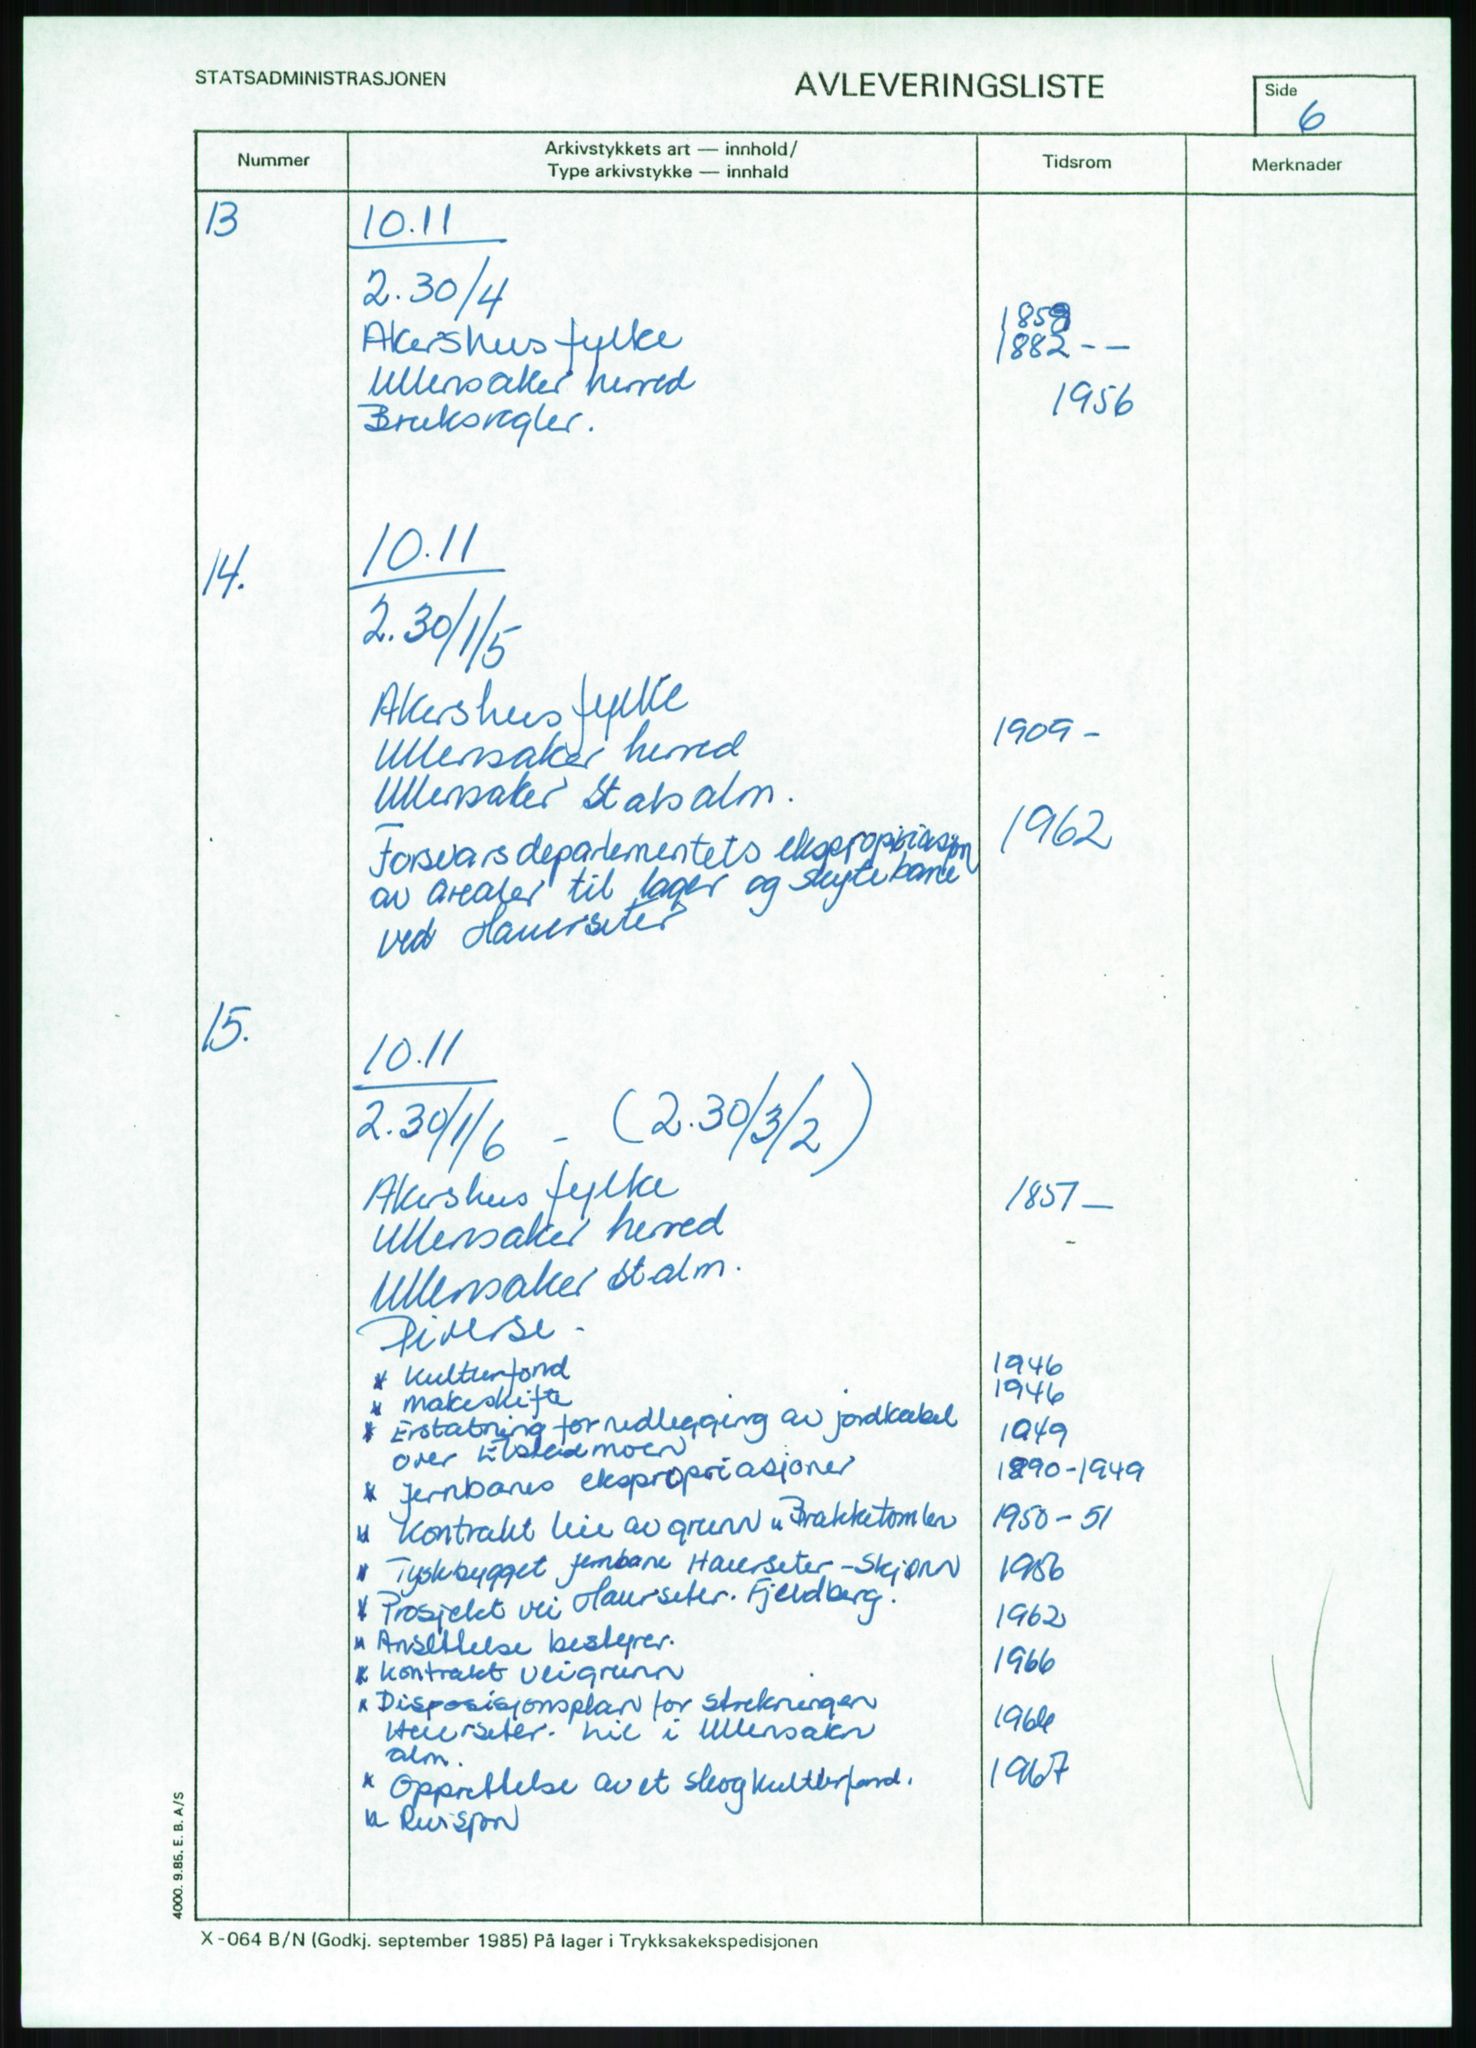 STATSADMINISTRASJONEN
AVLEVERINGSLISTE
Side
6
Nummer
Arkivstykkets art — innhold/
Type arkivstykke — innhald
Tidsrom
Merknader
13
10.11
2.30/4
1859
Akershus fylke
1882 - —
Ullensaker herred
1956
Bruksregler.
14.
10.11
2.30/1/5
Akershus fylke
Ullensaker herred
1909 -
Ullensaker Statsalm.
Forsvarsdepartementets ekspropriasjon
1962
av arealer til lager og skytebane
ved Hauerseter
15.
10.11
2.30/1/6 - (2.30/3/2)
Akershus fylke
1857 —
Ullensaker herred
Ullensaker st alm.
Diverse -
* Kulturfond
1946
* makeskifte
1946
* Erstatning for nedlegging av jordkabel
1949
over moen
* Jernbanes ekspropriasjoner
1890-1949
* Kontrakt leie av grunn " Brakketomten
1950 - 51
* Tyskbygget jernbane Hauerseter - Skjønn
1956
* Prosjekt vei Haurseter. Fjeldberg.
1962
* Ansettelse bestyrer.
* Kontrakt veigrunn
1966
* Disposisjonsplan for strekningen
Hauerseter. i Ullensaker
1964
alm.
* Opprettelse av et skogkulturfond.
1967
* Revisjon
4000. 9.85. E. B. A/S
X-064 B/N (Godkj. september 1985) På lager i Trykksakekspedisjonen